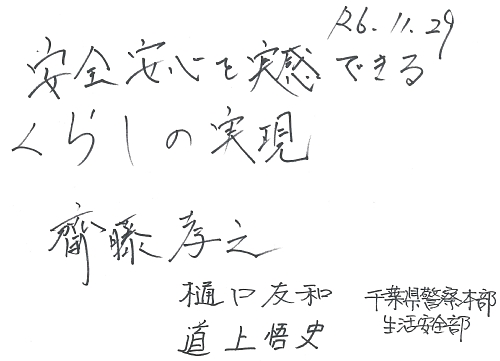 R6.11.29
安全安心を実感できる
くらしの実現
齋藤孝之
樋口友和
道上悟史
千葉県警察本部
生活安全部